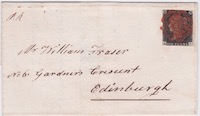 Mr William Fraser
No 6 Gardners Crescent
Edinburgh